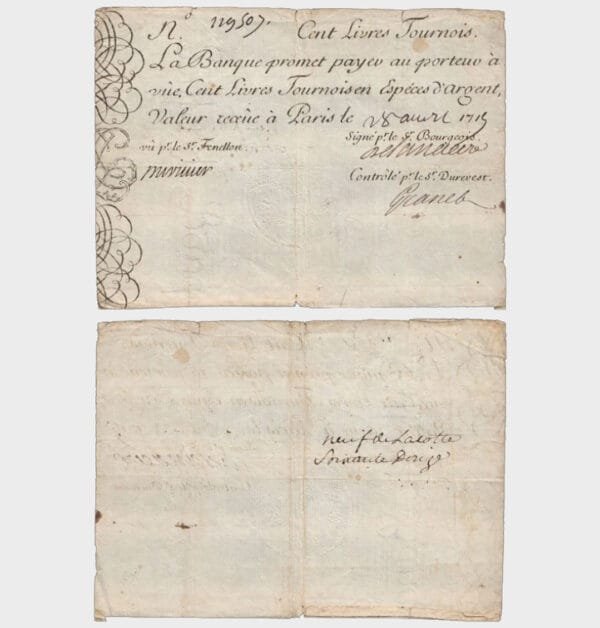 N.º 119507. Cent Livres Tournois.
La Banque promet payer au porteur à
vûe, Cent Livres Tournois en Espèces d'argent,
Valeur reçûe à Paris le 28 avril 1719
Signé p.r le S.r Bourgeois.
vû p.r le S.r Fenellon.
Contrôlé p.r le S.r Durevest.
Granet
neuf de La Cotte